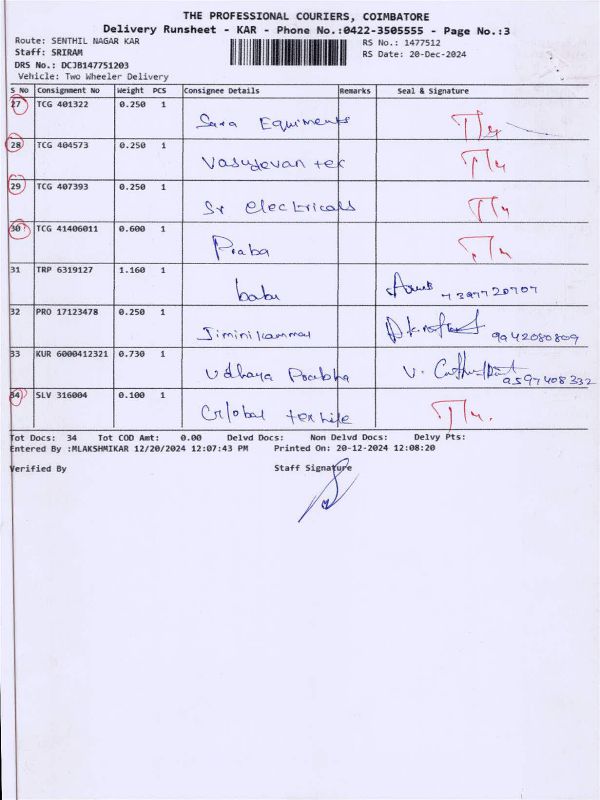 THE PROFESSIONAL COURIERS, COIMBATORE
Delivery Runsheet - KAR - Phone No.:0422-3505555 - Page No.:3
Route: SENTHIL NAGAR KAR RS No.: 1477512
Staff: SRIRAM RS Date: 20-Dec-2024
DRS No.: DCJB147751203
Vehicle: Two Wheeler Delivery
S No Consignment No Weight PCS Consignee Details Remarks Seal & Signature
27 TCG 401322 0.250 1
Sara Equiments
28 TCG 404573 0.250 1
Vasudevan tex
29 TCG 407393 0.250 1
Sr electricals
30 TCG 41406011 0.600 1
Praba
31 TRP 6319127 1.160 1
babu 7397720707
32 PRO 17123478 0.250 1
9942080809
33 KUR 6000412321 0.730 1
Udhaya Prabha 9597408332
34 SLV 316004 0.100 1
Global textile
Tot Docs: 34 Tot COD Amt: 0.00 Delvd Docs: Non Delvd Docs: Delvy Pts:
Entered By :MLAKSHMIKAR 12/20/2024 12:07:43 PM Printed On: 20-12-2024 12:08:20
Verified By Staff Signature